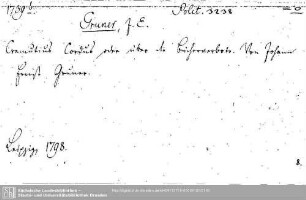 1739 b.
Polit. 3232
Gruner, J. E.
Cremutius Cordus oder über die Bücherverbote. Von Johann
Ernst Gruner.
Leipzig, 1798.
8.
Sächsische Landesbibliothek -
Staats- und Universitätsbibliothek Dresden